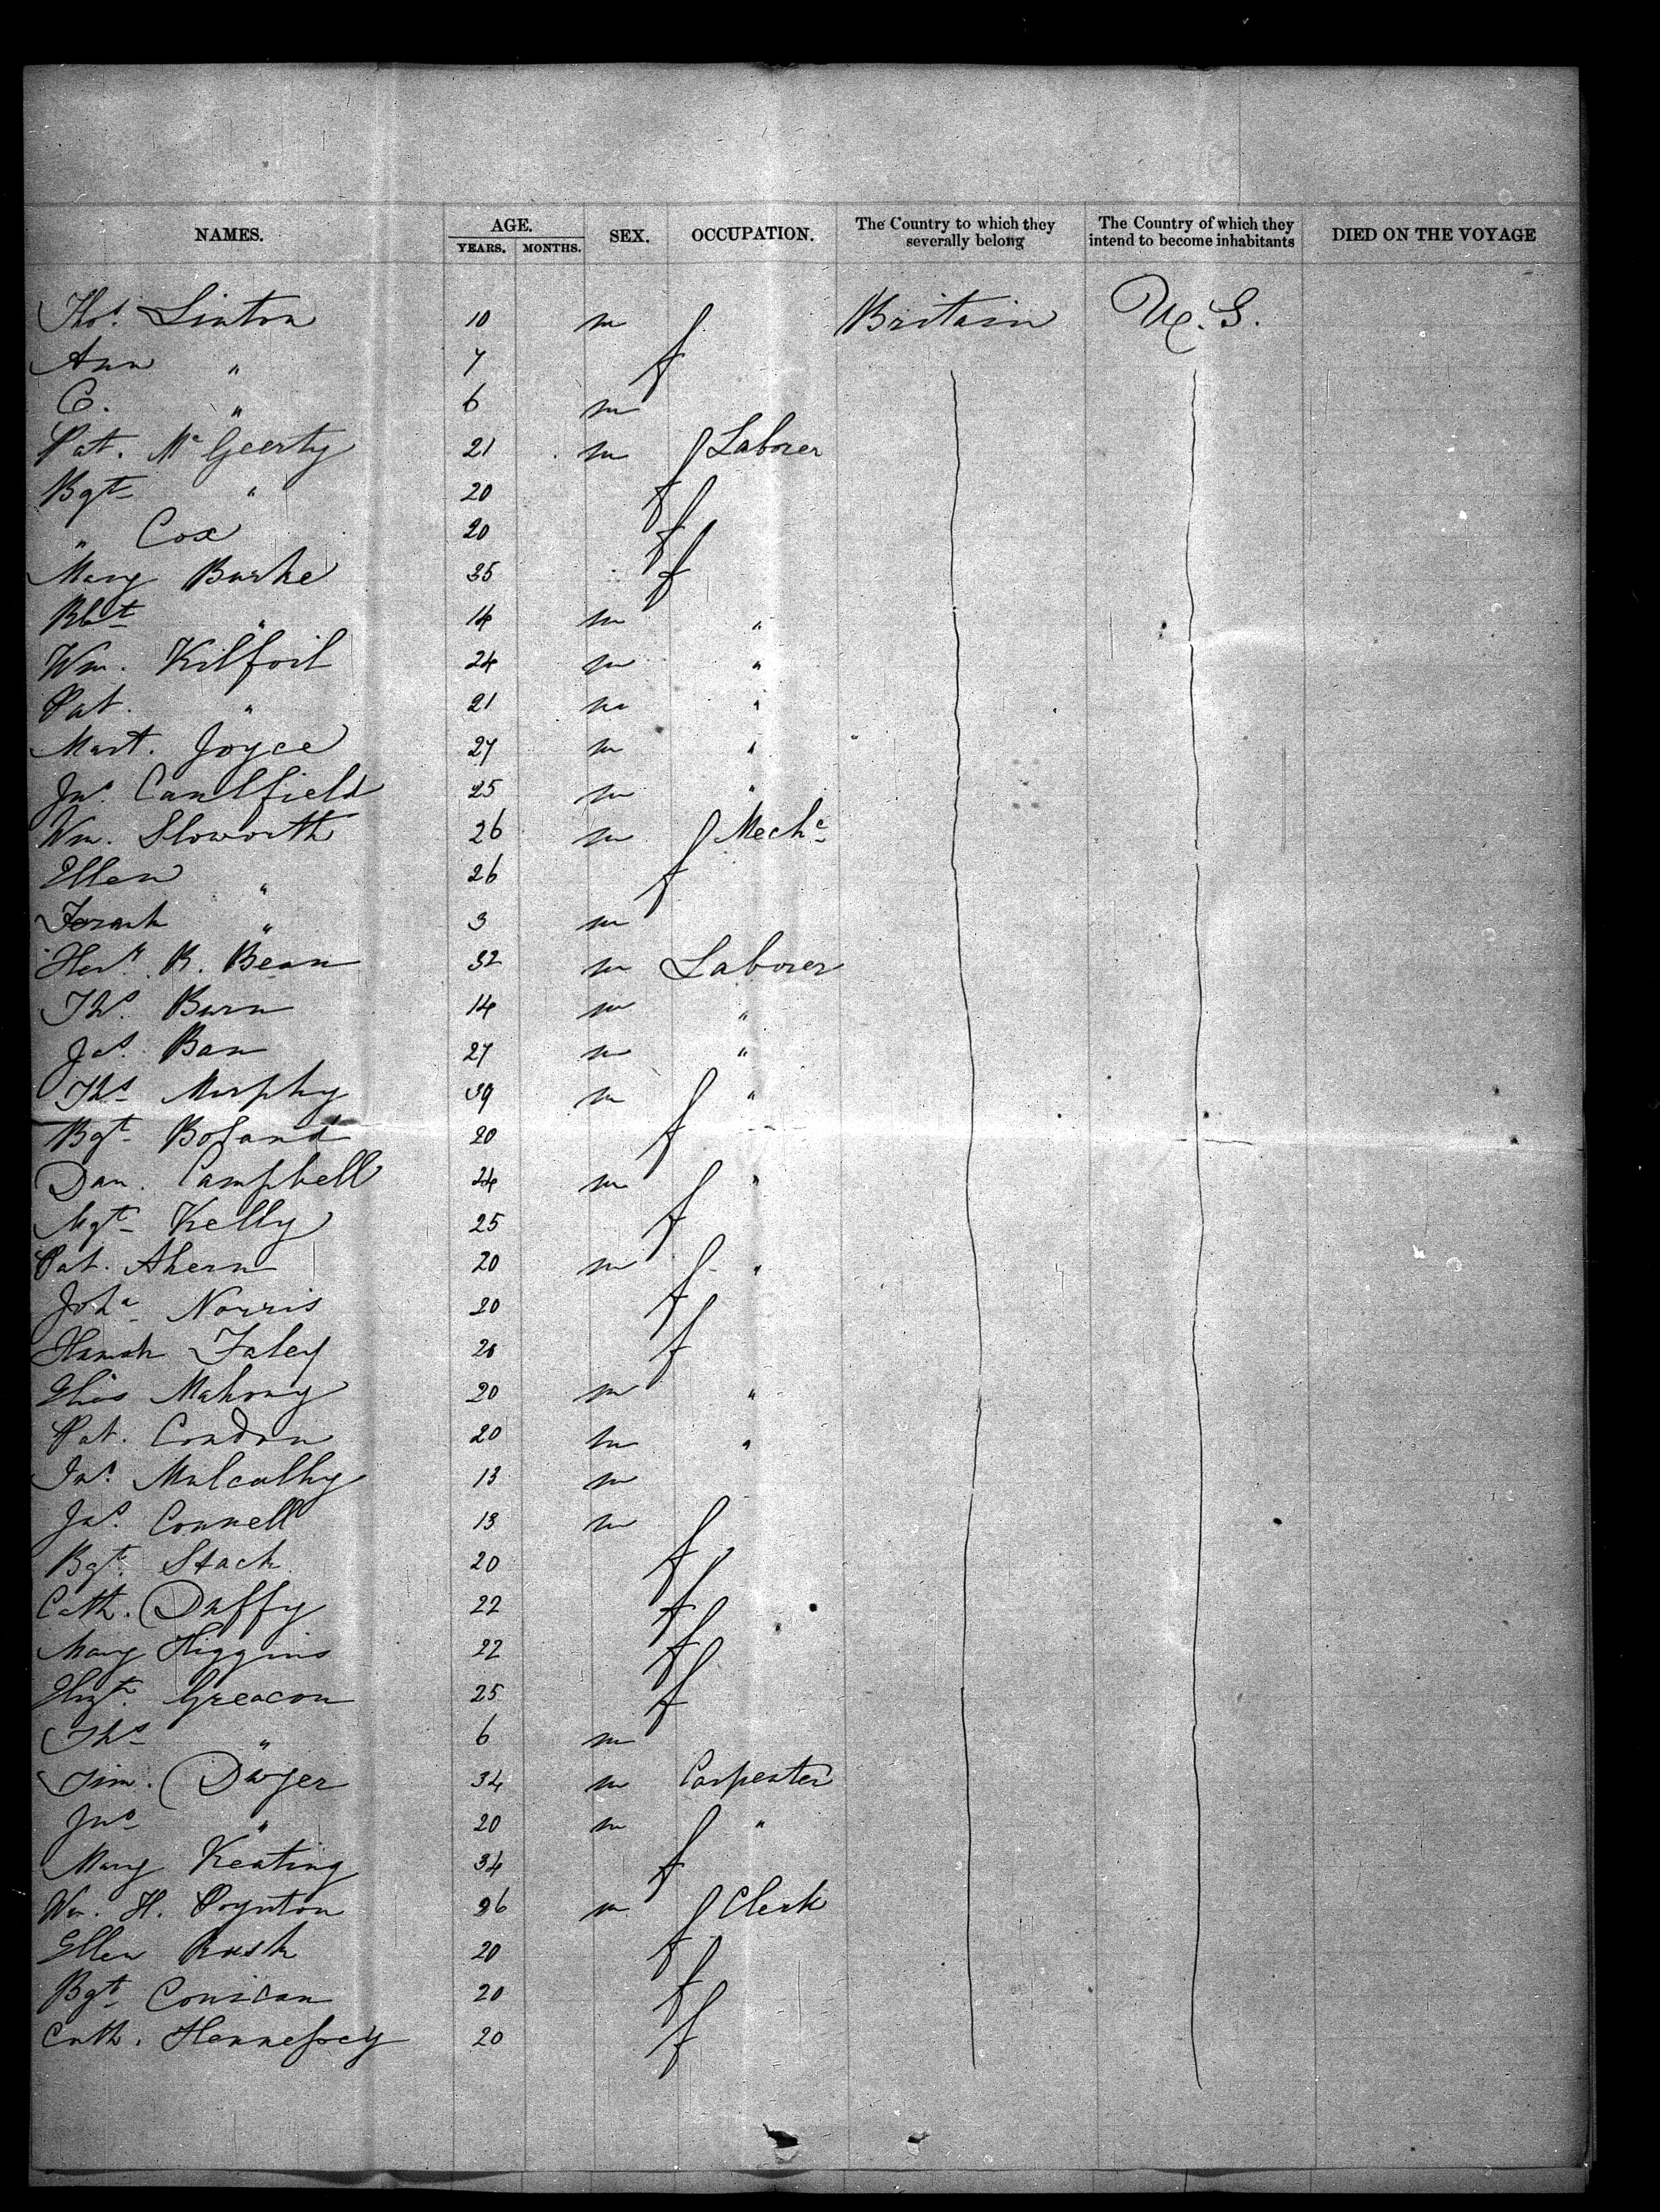 NAMES. AGE. YEARS. MONTHS. SEX. OCCUPATION. The Country to which they severally belong The Country of which they intend to become inhabitants DIED ON THE VOYAGE
Thos. Linton 10 m Britain U.S.
Ann " 7 f
C. " 6 m
Pat. McGeerty 21 m Laborer
Bgt " 20 f
" Cox 20 f
Mary Burke 35 f
Rbt " 14 m "
Wm. Kilfoil 24 m "
Pat. " 21 m "
Mart. Joyce 27 m "
Jno. Caulfield 25 m "
Wm. Sloworth 26 m Mechc
Ellen " 26 f
Frank " 3 m
Heny. R. Bean 32 m Laborer
Ths. Burn 14 m "
Jas. Ban 27 m "
Ths Murphy 39 m "
Bgt Boland 20 f
Dan. Campbell 24 m "
Mgt Kelly 25 f
Pat. Ahern 20 m "
Joha Norris 20 f
Hanah Faley 20 f
Mahony 20 m "
Pat. Condon 20 m "
Jas. Mulcathy 13 m
Jas. Connell 13 m
Bgt. Stack 20 f
Cath. Duffy 22 f
Mary Higgins 22 f
Elizth. Greacon 25 f
Ths " 6 m
Tim. Dwyer 34 m Carpenter
Jno " 20 m "
Mary Keating 34 f
Wm. H. Poynton 26 m Clerk
Ellen Rush 20 f
Bgt 20 f
Cath. Hennessey 20 f